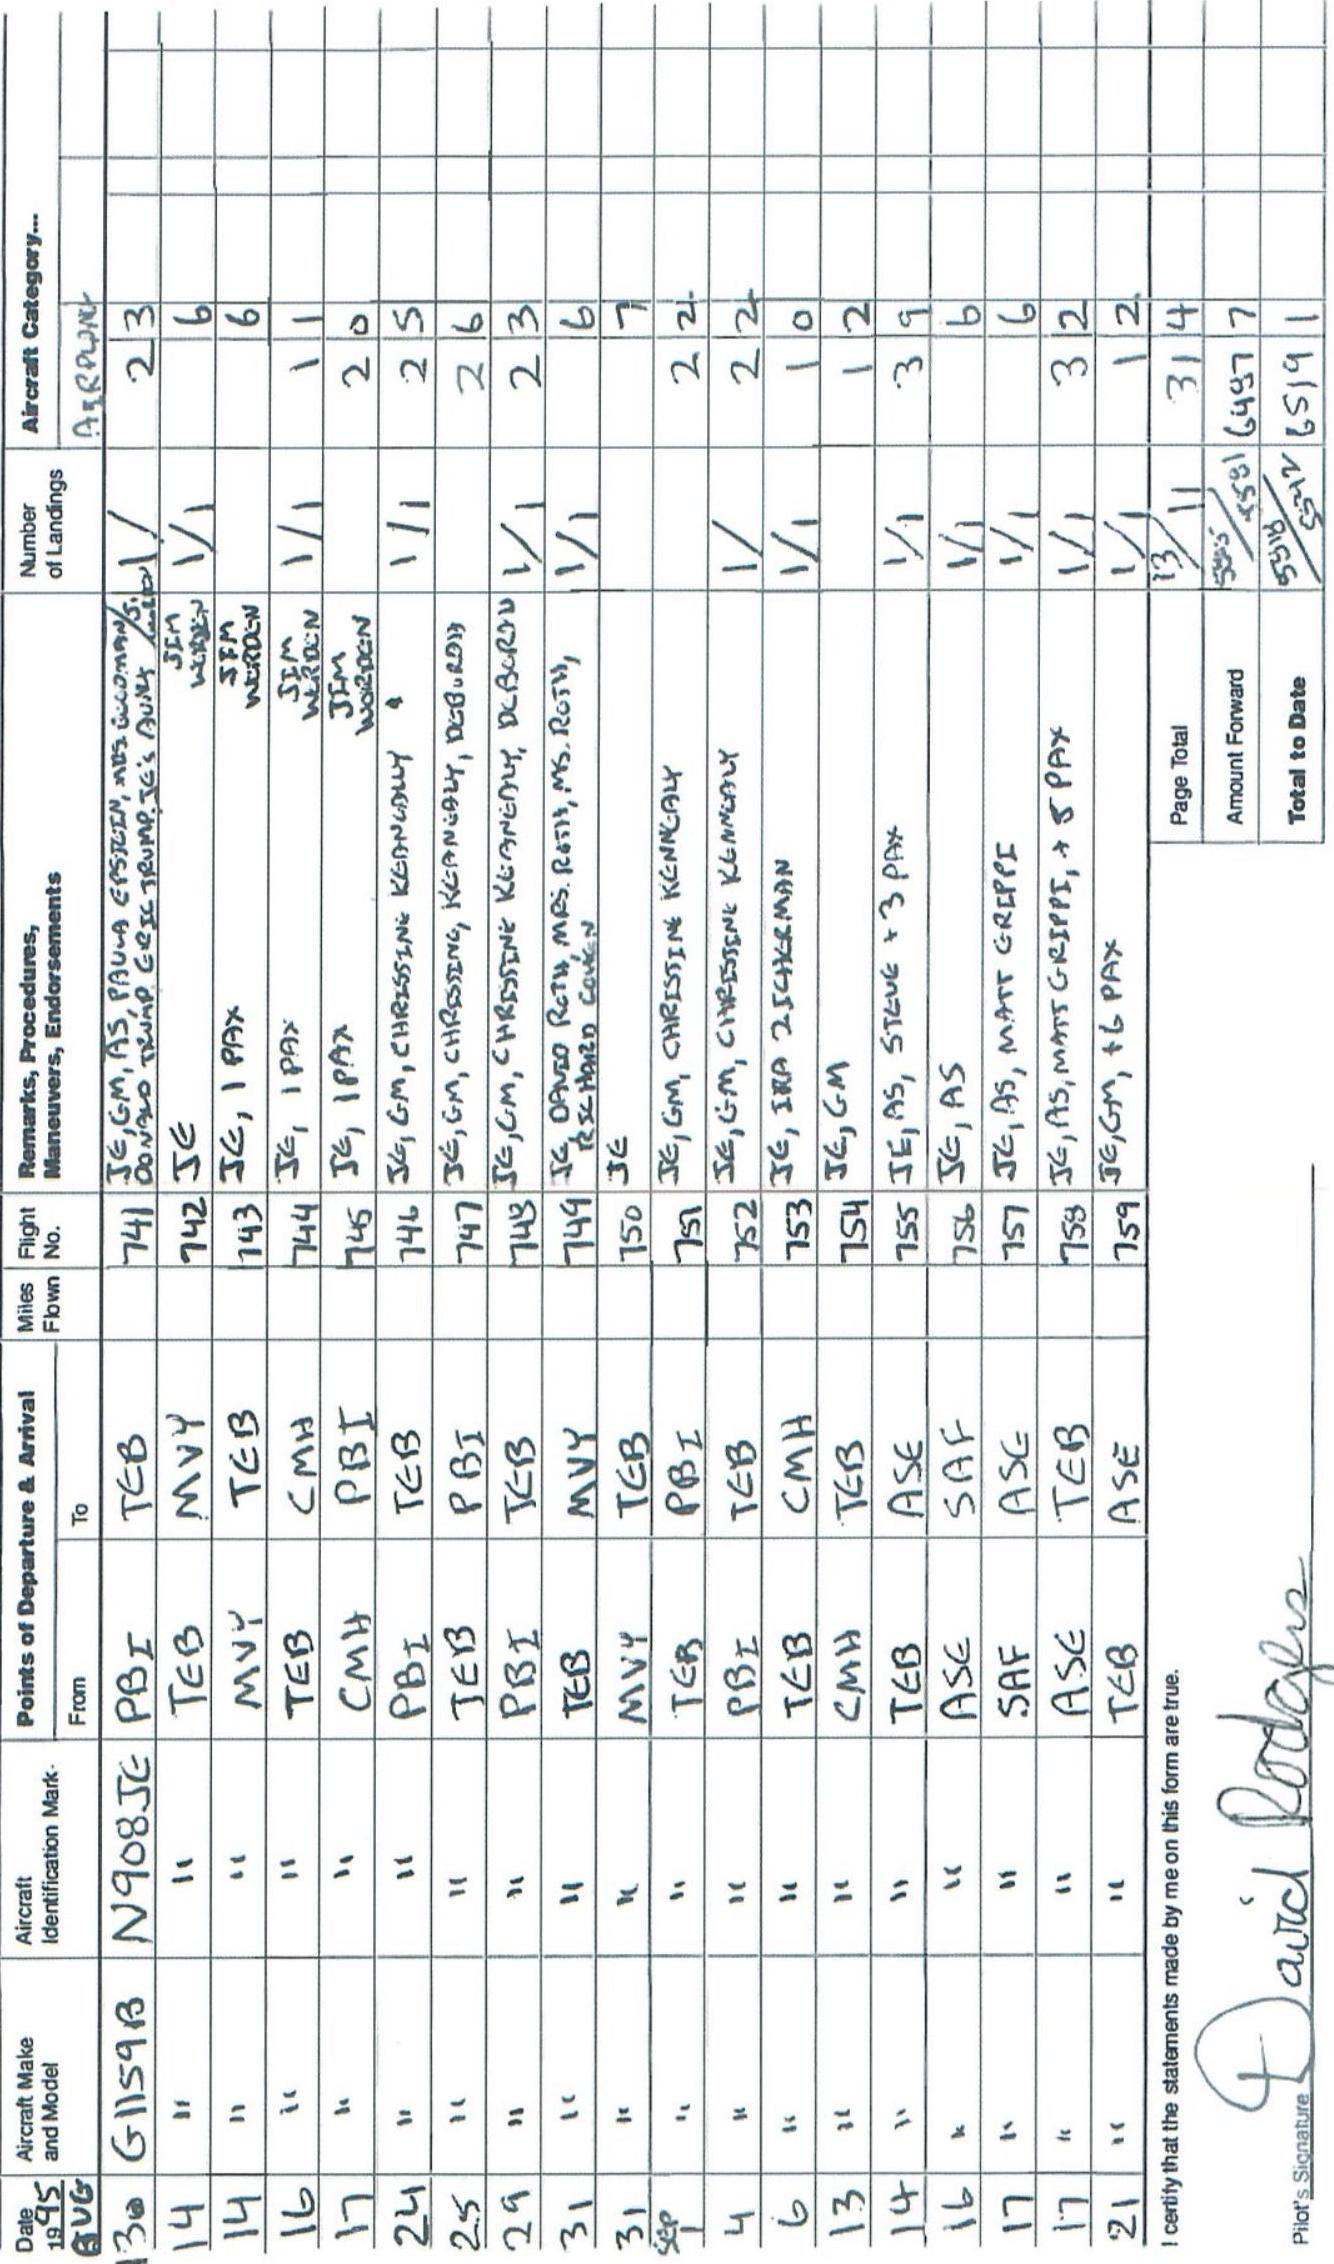 Date 19 95 Aircraft Make and Model Aircraft Identification Mark- Points of Departure & Arrival Miles Flown Flight No. Remarks, Procedures, Maneuvers, Endorsements Number of Landings Aircraft Category...
AUG From To AIRPLANE
13 G1159B N908JE PBI TEB 741 JE, GM, AS, PAULA EPSTEIN, MRS.
DONALD TRUMP, ERIC TRUMP, JE's AUNT 1/ 2 3
14 " " TEB MVY 742 JE JIM WORDEN 1/1 6
14 " " MVY TEB 743 JE, 1 PAX JIM WORDEN 6
16 " " TEB CMH 744 JE, 1 PAX JIM WORDEN 1/1 1 1
17 " " CMH PBI 745 JE, 1 PAX JIM WORDEN 2 0
24 " " PBI TEB 746 JE, GM, CHRISSINE KEANEALLY 1/1 2 5
25 " " TEB PBI 747 JE, GM, CHRISSINE, KEANEALY, DEBURAH 2 6
29 " " PBI TEB 748 JE, GM, CHRISSINE KEANEALY, DEBORAH 1/1 2 3
31 " " TEB MVY 749 JE, DAVID ROTH, MRS. ROTH, MS. ROTH,
RICHARD COHEN 1/1 6
31 " " MVY TEB 750 JE 7
SEP 1 " " TEB PBI 751 JE, GM, CHRISTINE KENNEALY 2 2
4 " " PBI TEB 752 JE, GM, CHRISTINE KENNEALY 1/ 2 2
6 " " TEB CMH 753 JE, IRA ZICHERMAN 1/1 1 0
13 " " CMH TEB 754 JE, GM 1 2
14 " " TEB ASE 755 JE, AS, STEVE + 3 PAX 1/1 3 9
16 " " ASE SAF 756 JE, AS 1/1 6
17 " " SAF ASE 757 JE, AS, MATT GRIPPI 1/1 6
17 " " ASE TEB 758 JE, AS, MATT GRIPPI, + 5 PAX 1/1 3 2
21 " " TEB ASE 759 JE, GM, + 6 PAX 1/1 1 2
I certify that the statements made by me on this form are true. Page Total 13/11 31 4
Amount Forward 6487 7
Pilot's Signature David Rodgers Total to Date 6519 1